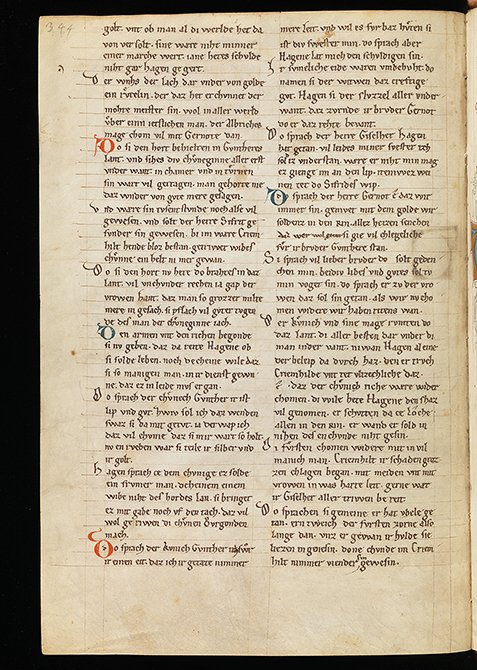 344
golt. vnt ob man al di werlde het da
von versolt. sine ware niht minner
einer marche wert. iane het es schulde
niht gar hagen gegert.
Der wnhs der lach dar vnder von golde
ein rvtelin. der daz het erchvnnet der
mohte meister sin. wol in aller werld
vber einen ieslichen man. der Albriches
mage chom vil mit Gernote dan.
Do si den hort behielten in Gvntheres
lant. vnd sihes div chvneginne aller erst
vnder want. in chamer vnd in tvrnen
sin wart vil getragen. man gehorte me
daz wnder von gvte mere gesagen.
Vnd ware sin tvsent stvnde noch als vil
gewesen. vnd solt der herre Sifrit ge
svnder sin gewesen. bi im ware Criem
hilt hende bloz bestan. getriwer wibes
chvnne ein helt ni mer gewan.
Do si den hort nv hete do brahtes in daz
lant. vil vnchvnder rechen ia gap der
vrowen hant. daz man so grozzer milte
mere ni gesach. si pflach vil gvter tvgen
de des man der chvneginne iach.
Den armen vnt den richen begonde
si nv geben. daz da reite Hagene ob
si solde leben. noch decheine wile daz
si so manigen man. in ir dienst gewn
ne. daz ez in leide mvs ergan.
Do sprach der chvnech Gvnther ir ist
lip vnd gvt. zwiv sol ich daz wenden
swaz si da mit getvt. ia erwarp ich
daz vil chvme. daz si mir wart so holt.
nv enrvchen war si teile ir silber vnd
ir golt.
Hagen sprach ce dem chvnige ez solde
ein frvmer man. deheinem einem
wibe niht des hordes lan. si bringet
ez mit gabe noch vf den tach. daz vil
wol geriwen di chvnen Bvrgonden
mach.
Do sprach der kvnich Gvnther ich swr
ir einen eit. daz ich ir getate nimmer
mere leit. vnd wil es fvrbaz hvten si
ist div swester min. do sprach aber
Hagene lat mich den schvldigen sin.
Ir svmeliche eide waren vmbehvt. do
namen si der witwen daz creftige
gvt. Hagen si der slvzzel aller vnder
want. daz zvrnde ir brvder Gernot
do er daz rehte bevant.
Do sprach der herre Giselher Hagen
hat getan. vil leides miner swester ich
solt iz vnderstan. ware er niht min mag
ez gienge im an den lip. iteniwez wei
nen tet do Sifrides wip.
Do sprach der herre Gernot e daz wir
immer sin. gemvet mit dem golde wir
soldenz in den rin. allez heizen senchen
si gie vil chlegeliche
fvr ir brvder Gunthere stan.
Si sprach vil lieber brvder dv solt geden
chen min. beidiv libes vnd gvtes solt dv
min voget sin. do sprach er zv der vro
wen daz sol sin getan. als wir nv cho
men widere wir haben ritens wan.
Der kvnich vnd sine mage rvmten do
daz lant. di aller besten dar vnder di
man inder vant. niwan Hagen al eine
der beleip da dvrch haz. den er trvch
Criemhilde vnt tet vlizechliche daz.
E daz der chvnich riche ware wider
chomen. di wile hete Hagene den shaz
vil genomen. er schvtten da ce loche
allen in den rin. er wand er sold in
niezen des enchvnde niht gesin.
Di fvrsten chomen widere mit in vil
manich man. Criemhilt ir schaden groz
zen chlagen began. mit meiden vnt mit
vrowen in was harte leit. gerne war
ir Giselher aller triwen bereit.
Do sprachen si gemeine er hat vbele ge
tan. er entweich der fvrsten zorne also
lange dan. vnz er gewan ir hvlde si
liezzen in genesin. done chvnde im Criem
hilt nimmer viender gewesin.